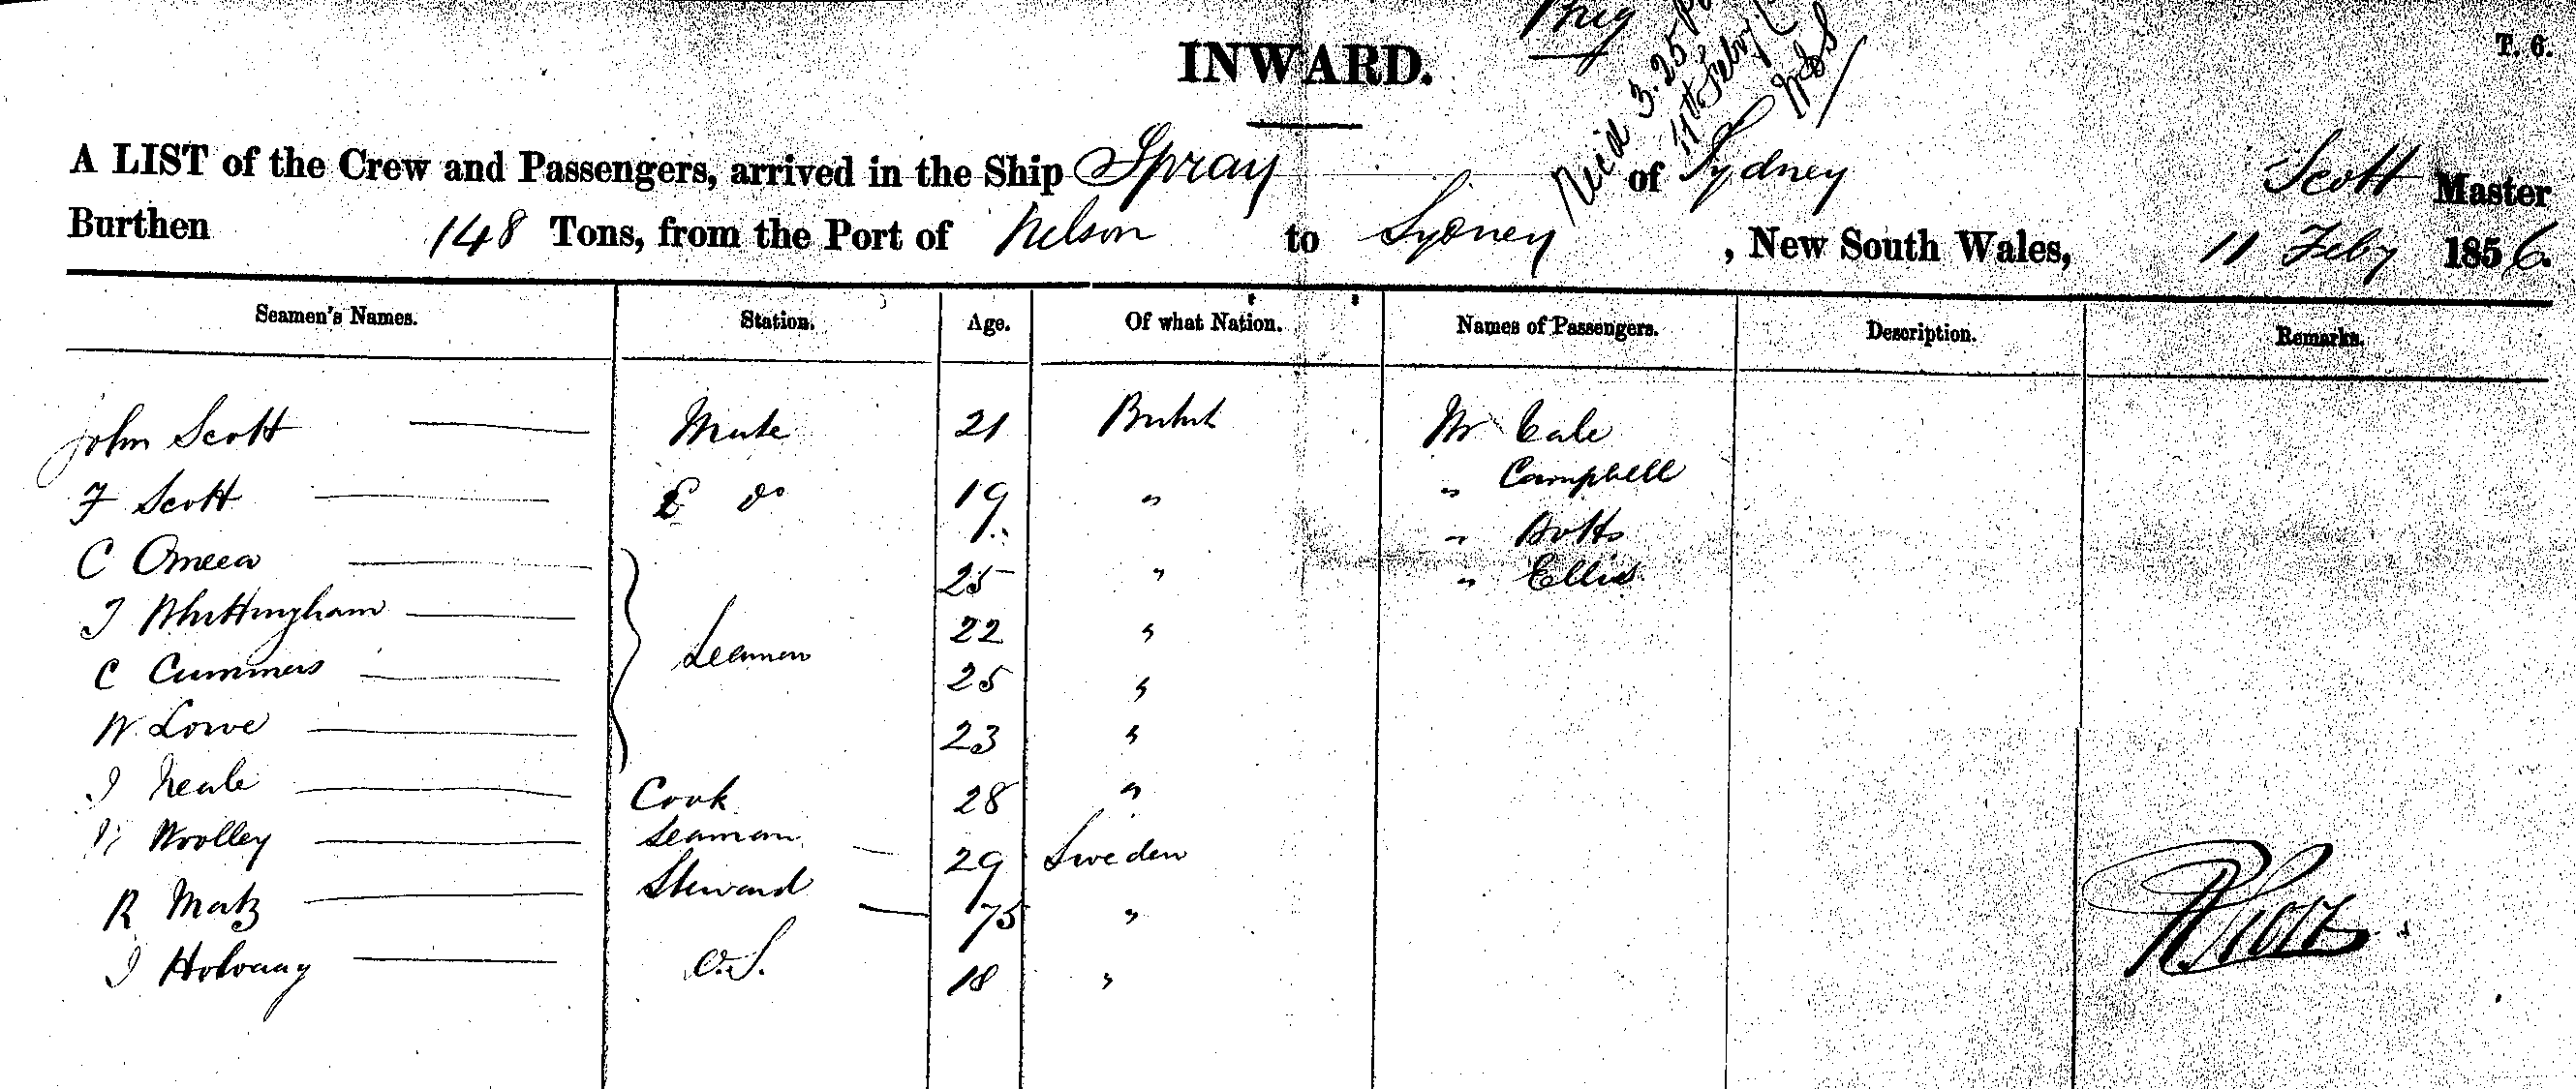 Brig
T. 6.
INWARD.
Recd 3.25 p
11th Feby
A LIST of the Crew and Passengers, arrived in the Ship Spray of Sydney Scott Master
Burthen 148 Tons, from the Port of Nelson to Sydney, New South Wales, 11 Feby 1856.
Seamen's Names. Station. Age. Of what Nation. Names of Passengers. Description. Remarks.
John Scott Mate 21 British Mr Cale
F Scott 2 do 19 " " Campbell
C Omeea 25 " " Botts
J Whittingham 22 " " Ellis
C Cummers Seamen 25 "
W. Lowe 23 "
J Neale Cook 28 "
W Woolley Seaman 29 Sweden
R Matz Steward 75 "
J Holvaay O.S. 18 "
Scott